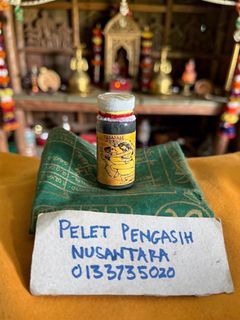 PELET PENGASIH
NUSANTARA
0133735020